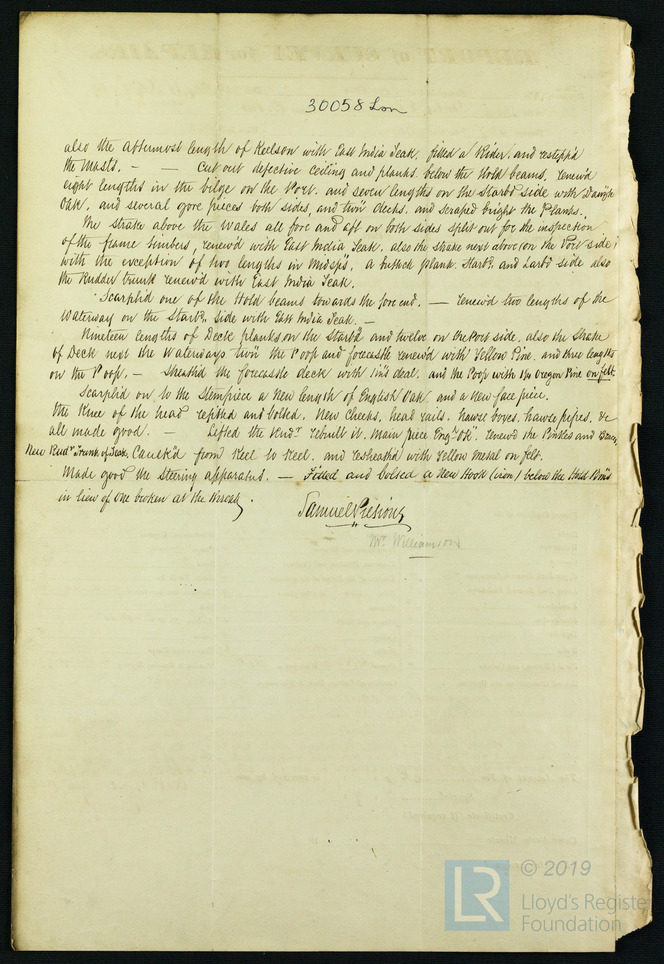 30058 Lon
also the aftermost length of Keelson with East India Teak, fitted a Rider, and restepp'd
the Masts. — — Cut out defective Ceiling and planks below the Hold beams, renew'd
eight lengths in the bilge on the Port, and seven lengths on the Starb'd side with Dantzic
Oak, and several gore pieces both sides, and tw'n decks, and scraped bright the Planks.
The strake above the Wales all fore and aft on both sides split out for the inspection
of the frame timbers, renew'd with East India Teak, also the strake next above (on the Port side)
with the exception of two lengths in Midsh's, a Buttock plank Starb'd and Larb'd side also
the Rudder trunk renew'd with East India Teak.
Scarph'd one of the Hold beams towards the fore end. — renew'd two lengths of the
Waterway on the Starb'd side with East India Teak. —
Nineteen lengths of Deck planks on the Starb'd and twelve on the Port side, also the Strake
of Deck next the Waterways tw'n the Poop and forecastle renew'd with Yellow Pine, and three lengths
on the Poop. — Sheath'd the forecastle deck with 1 ins deal, and the Poop with 1¼ Oregon Pine on felt.
Scarph'd on to the Stempiece a New length of English Oak and a New face piece.
the Knee of the head refitted and bolted, New cheeks, head rails, hawse boxes, hawse pipes, &c
all made good. — Lifted the Rud'r rebuilt it, Main piece Eng. Ok. renew'd the Pintles and Braces,
New Rud'r Trunk of Teak, Caulk'd from Keel to Keel, and resheath'd with Yellow Metal on felt.
Made good the Steering apparatus. — Fitted and bolted a New Hook (iron) below the Hold B'ms
in lieu of one broken at the throat.
Samuel
Mr. Williamson
© 2019
LR
Lloyd's Register
Foundation